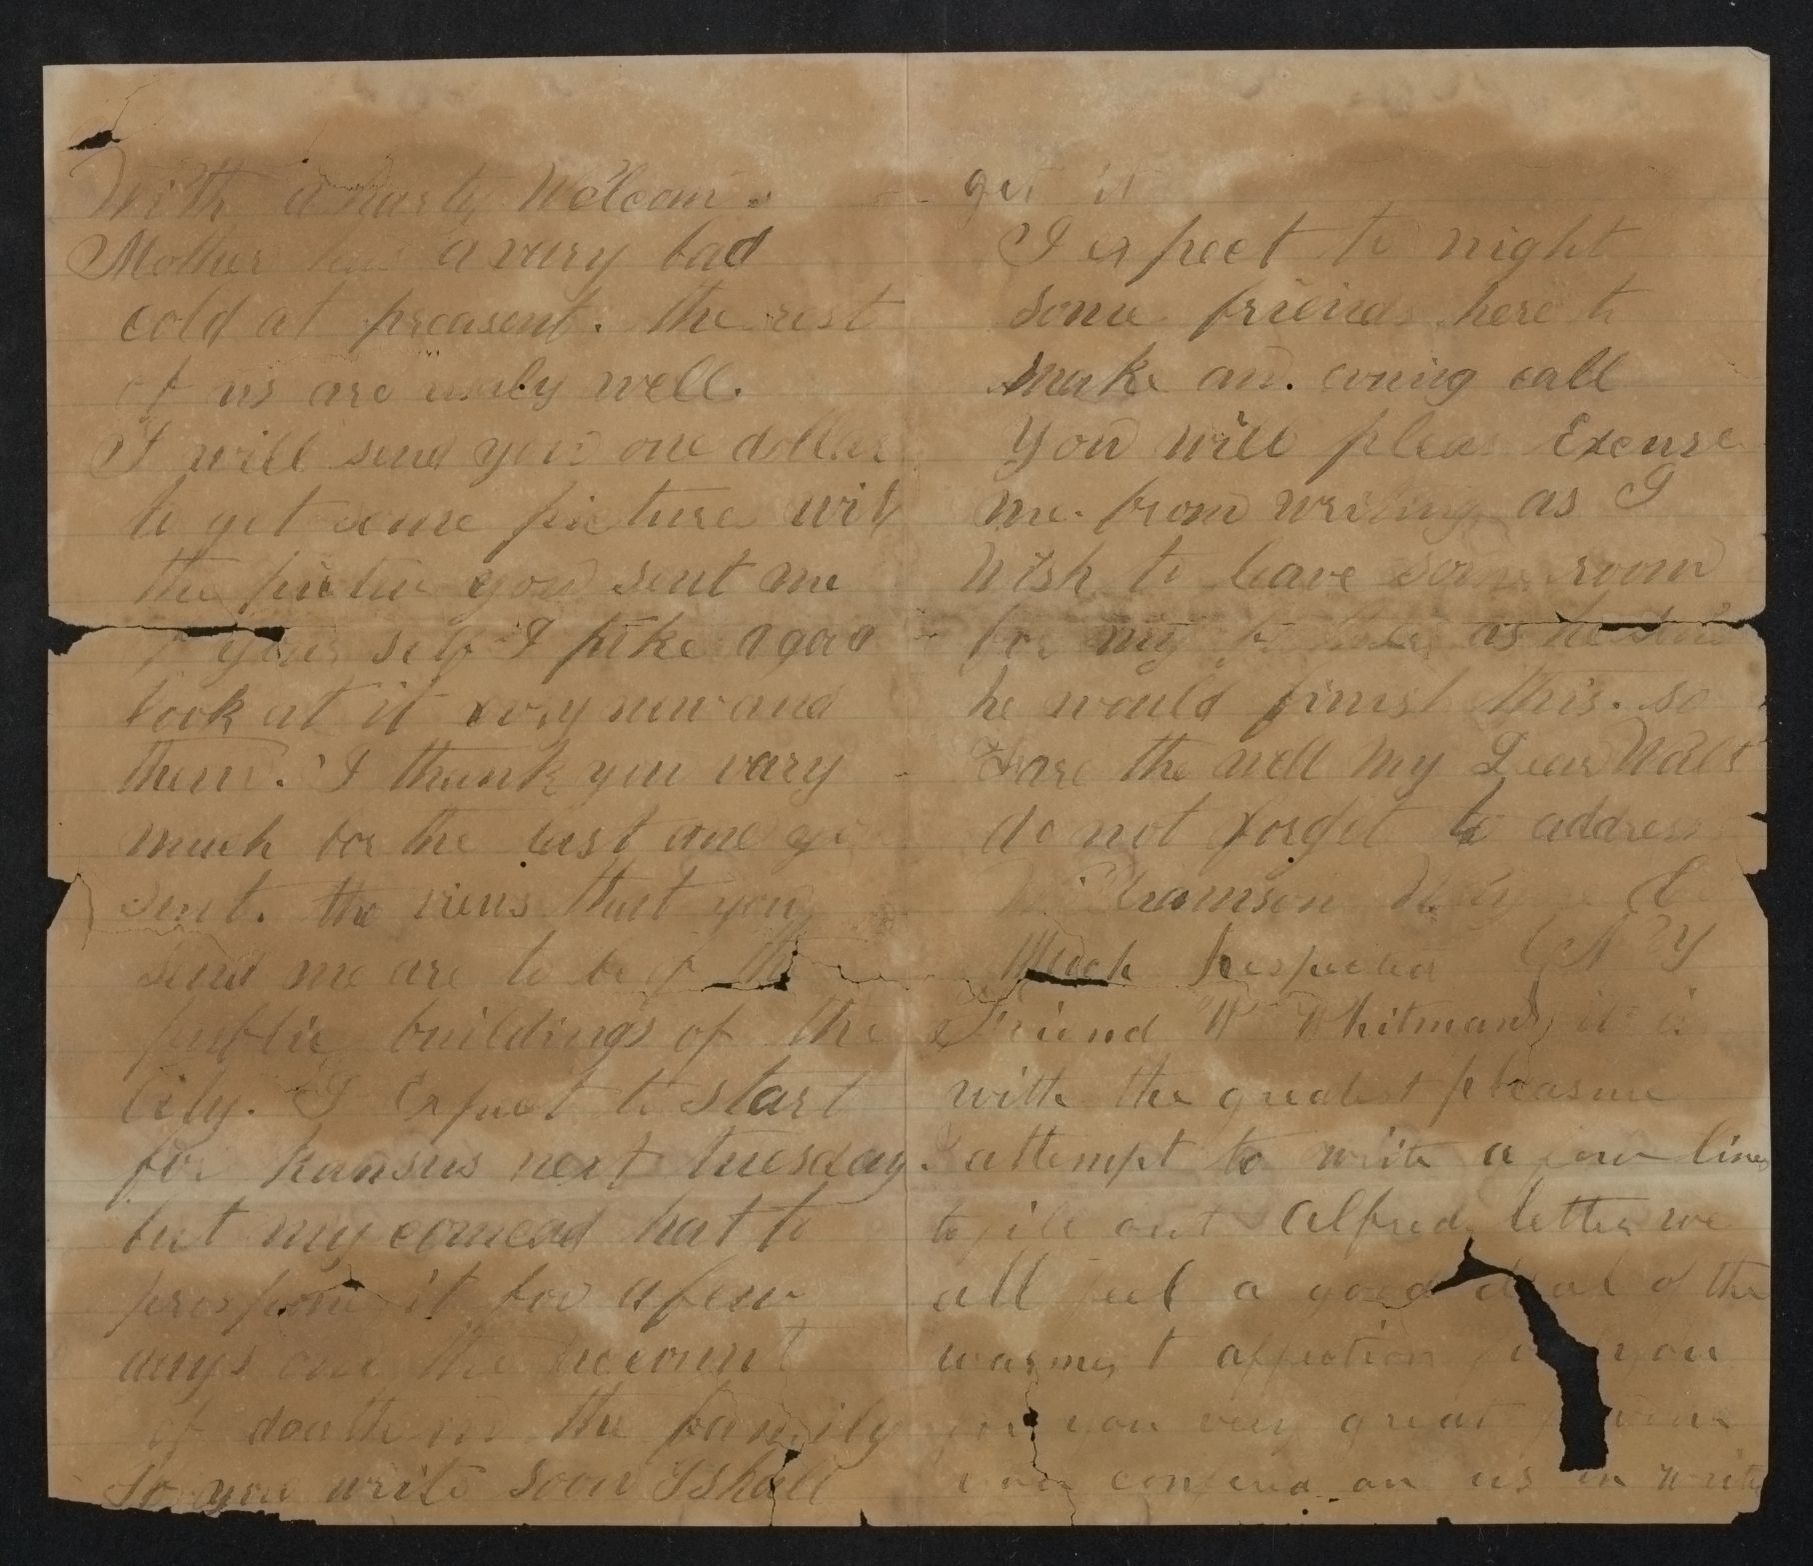 With a harty Welcom
Mother has a vary bad
cold at preasent. the rest
of us are usaly well.
I will send you one dollar
to get some picture with
the pictur you sent me
of your self I take agod
look at it evry now and
then. I thank you vary
much for the last one yo
sent. the views that you
send me are to be of the
public buildings of the
City. I Expect to start
for kansus next tuesday.
but my comead hat to
prospone it for a few
days on the account
of death in the family
So you write soon I shall
get it
I expect to night
some friends here to
make an. evning call
You will pleas Excuse
me. from writing as I
Wish to leave some room
for my as he
he would finish this. so
Fare the well My Dear Walt
do not forget to address
Williamson Wayne Co
N Y
Much Respected
Friend W Whitman, it is
with the greatest pleasure
I attempt to write a few lines
to fill out Alfred letter we
all feel a good deal of the
warmest affection for you
for you very great
ever confered on us in write